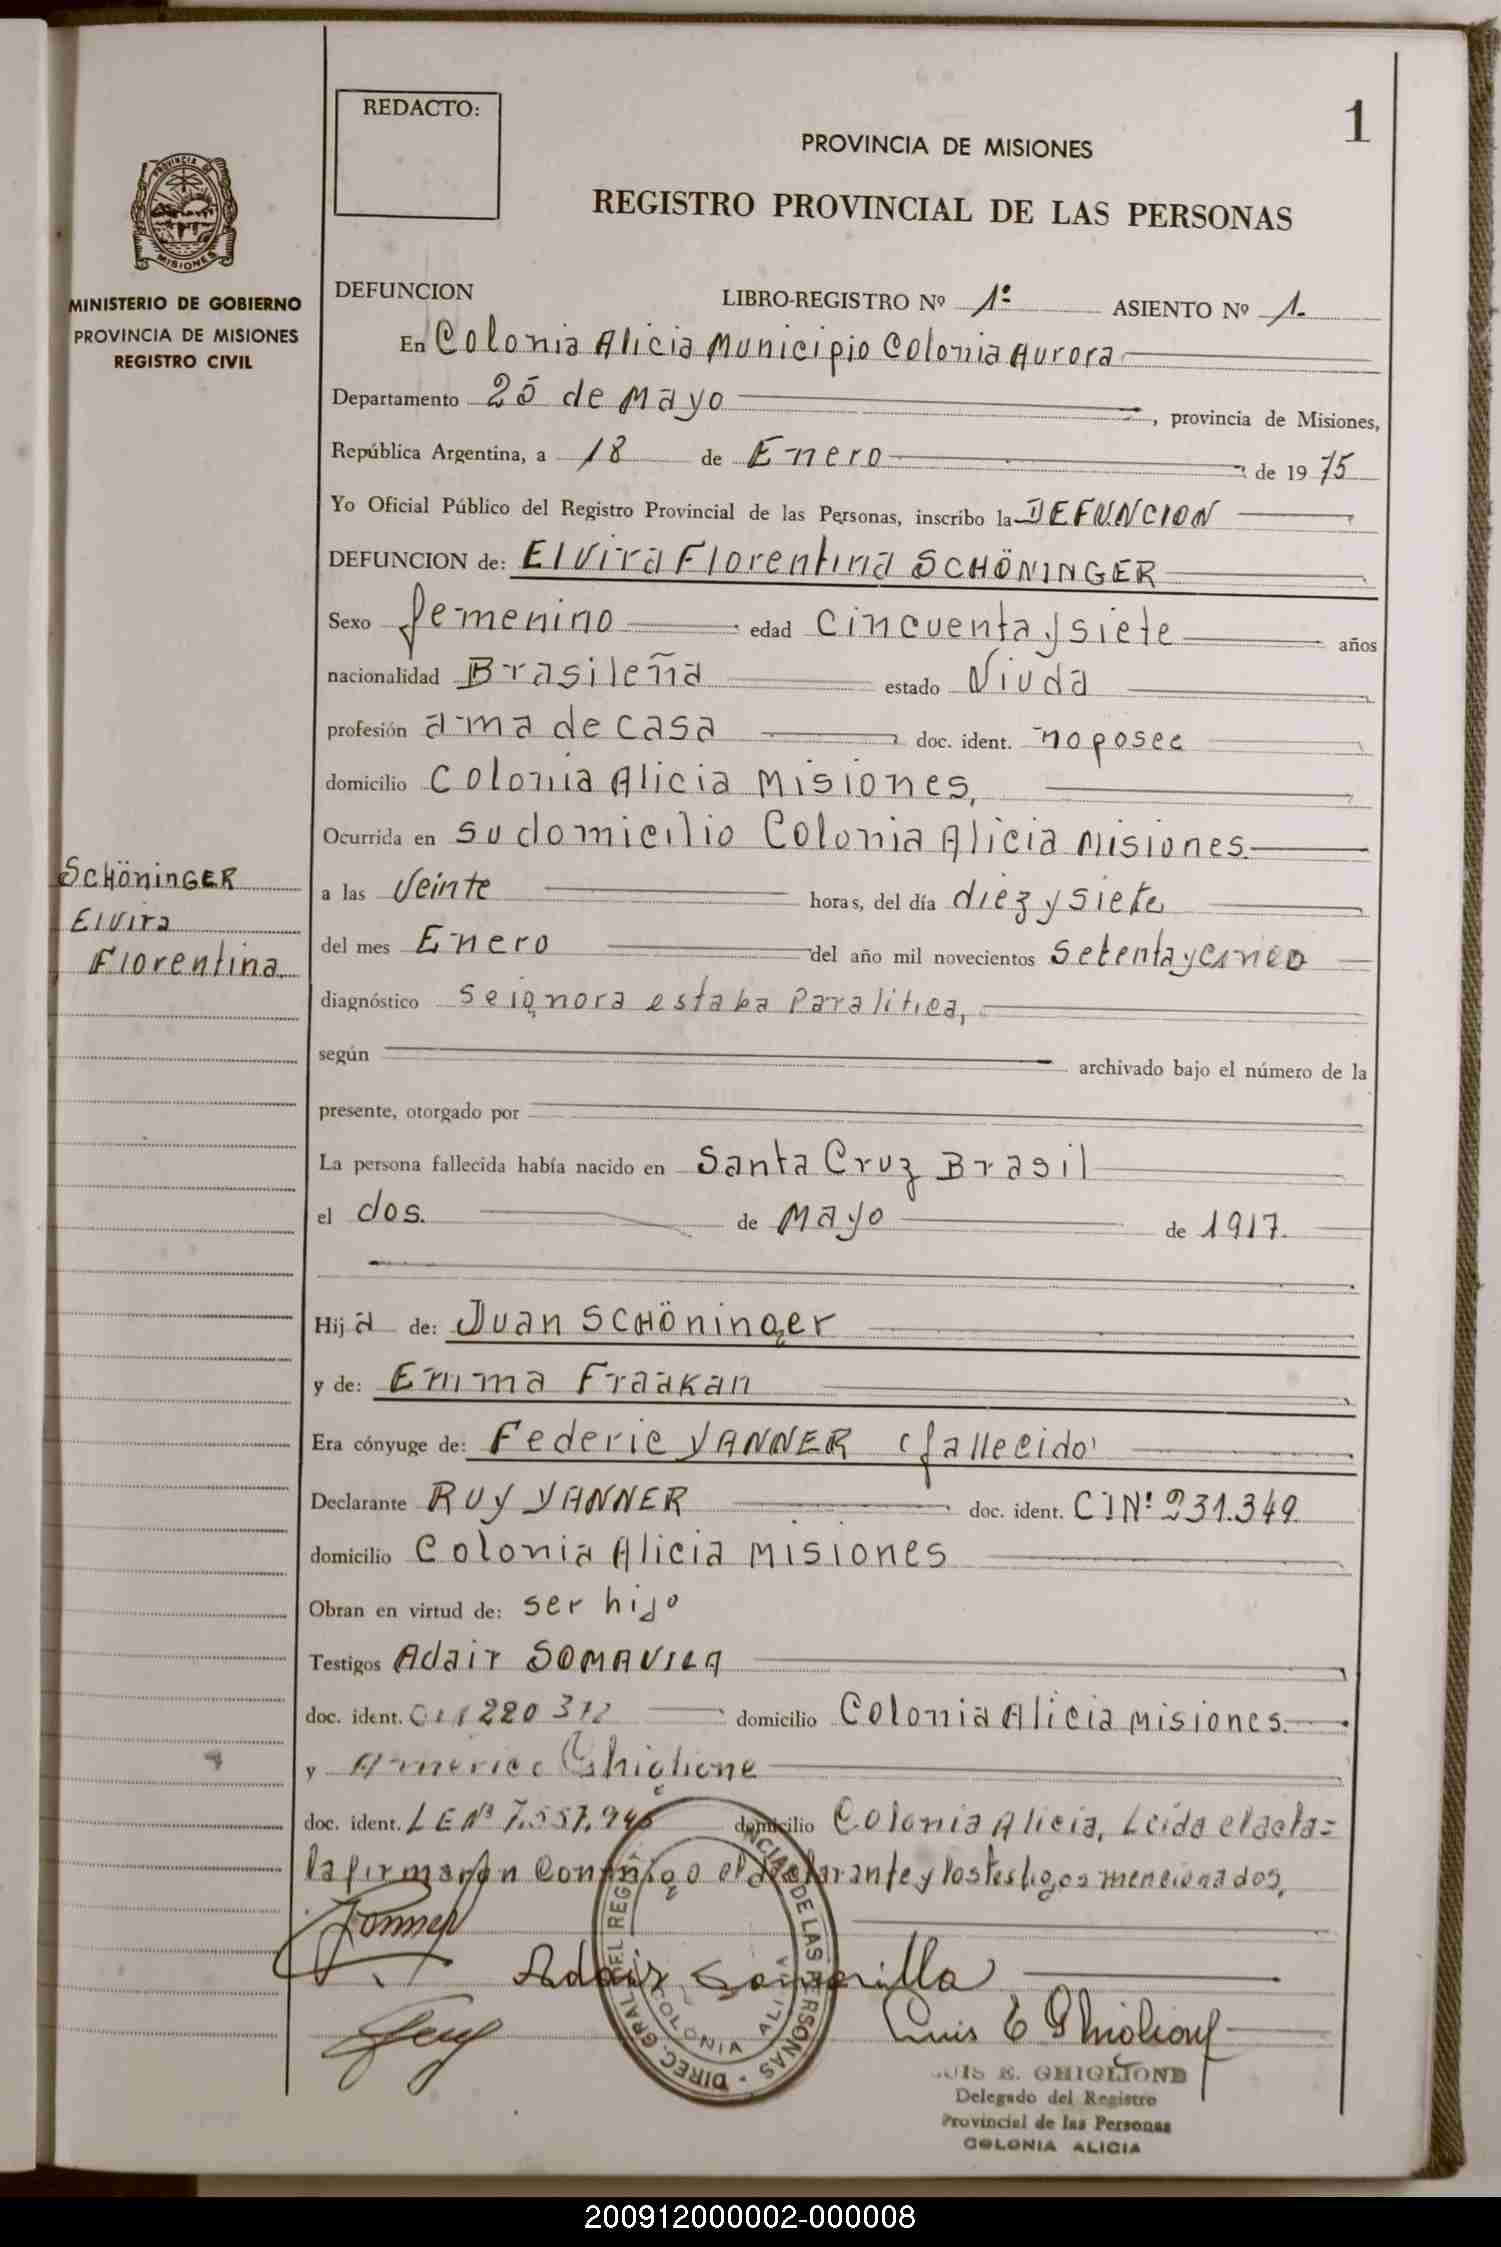 REDACTO:
1
PROVINCIA DE MISIONES
REGISTRO PROVINCIAL DE LAS PERSONAS
PROVINCIA DE
MISIONES
MINISTERIO DE GOBIERNO
PROVINCIA DE MISIONES
REGISTRO CIVIL
DEFUNCION LIBRO-REGISTRO Nº 1º ASIENTO Nº 1.
En Colonia Alicia Municipio Colonia Aurora
Departamento 25 de Mayo, provincia de Misiones,
República Argentina, a 18 de Enero de 1975
Yo Oficial Público del Registro Provincial de las Personas, inscribo la DEFUNCION
DEFUNCION de: Elvira Florentina SCHÖNINGER
Sexo femenino edad cincuenta y siete años
nacionalidad Brasileña estado Viuda
profesión ama de casa doc. ident. no posee
domicilio Colonia Alicia Misiones,
Ocurrida en su domicilio Colonia Alicia Misiones.
SCHÖninGER
Elvira
Florentina.
a las Veinte horas, del día diez y siete
del mes Enero del año mil novecientos setenta y cinco
diagnóstico seignora estaba Paralitica,
según archivado bajo el número de la
presente, otorgado por
La persona fallecida había nacido en Santa Cruz Brasil
el dos. de Mayo de 1917.
Hija de: Juan SCHÖninger
y de: Emma Fraakan
Era cónyuge de: Federic YANNER (fallecido)
Declarante RUY YANNER doc. ident. CINº 231.349.
domicilio Colonia Alicia Misiones
Obran en virtud de: ser hijo
Testigos Adair SOMAVILA
doc. ident. 220 312 domicilio Colonia Alicia Misiones.
y Americo Ghiglione
doc. ident. LE Nº 7.557.946 domicilio Colonia Alicia, Leida el acta=
la firmaron conmigo el declarante y los testigos mencionados,
Adair Somavilla
Luis E Ghiglione
DIREC. GRAL. DEL REGIST PROVINCIAL DE LAS PERSONAS
COLONIA ALICIA
LUIS E. GHIGLIONE
Delegado del Registro
Provincial de las Personas
COLONIA ALICIA
200912000002-000008